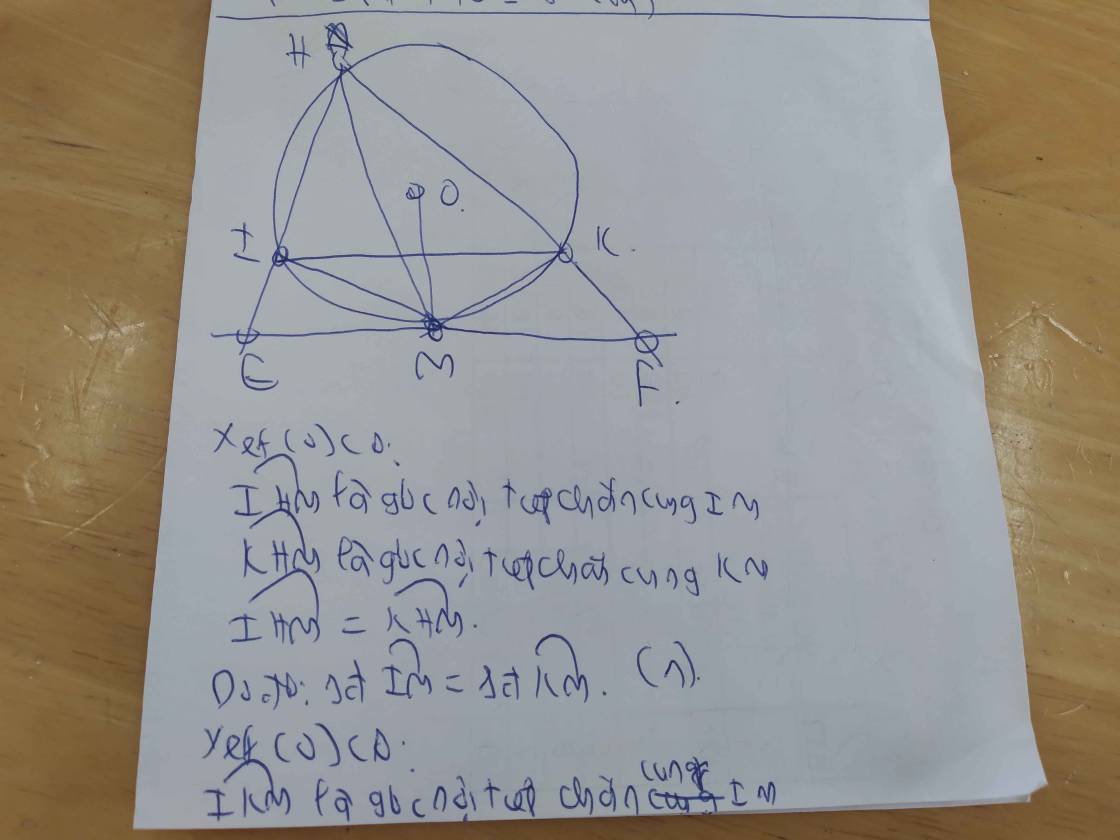 H
O.
I
K.
E
M
F.
Xét (O) có:
IHM là góc nội tiếp chắn cung IM
KHM là góc nội tiếp chắn cung KM
IHM = KHM.
Do đó: sđ IM = sđ KM. (1).
Xét (O) có:
IKM là góc nội tiếp chắn cung IM